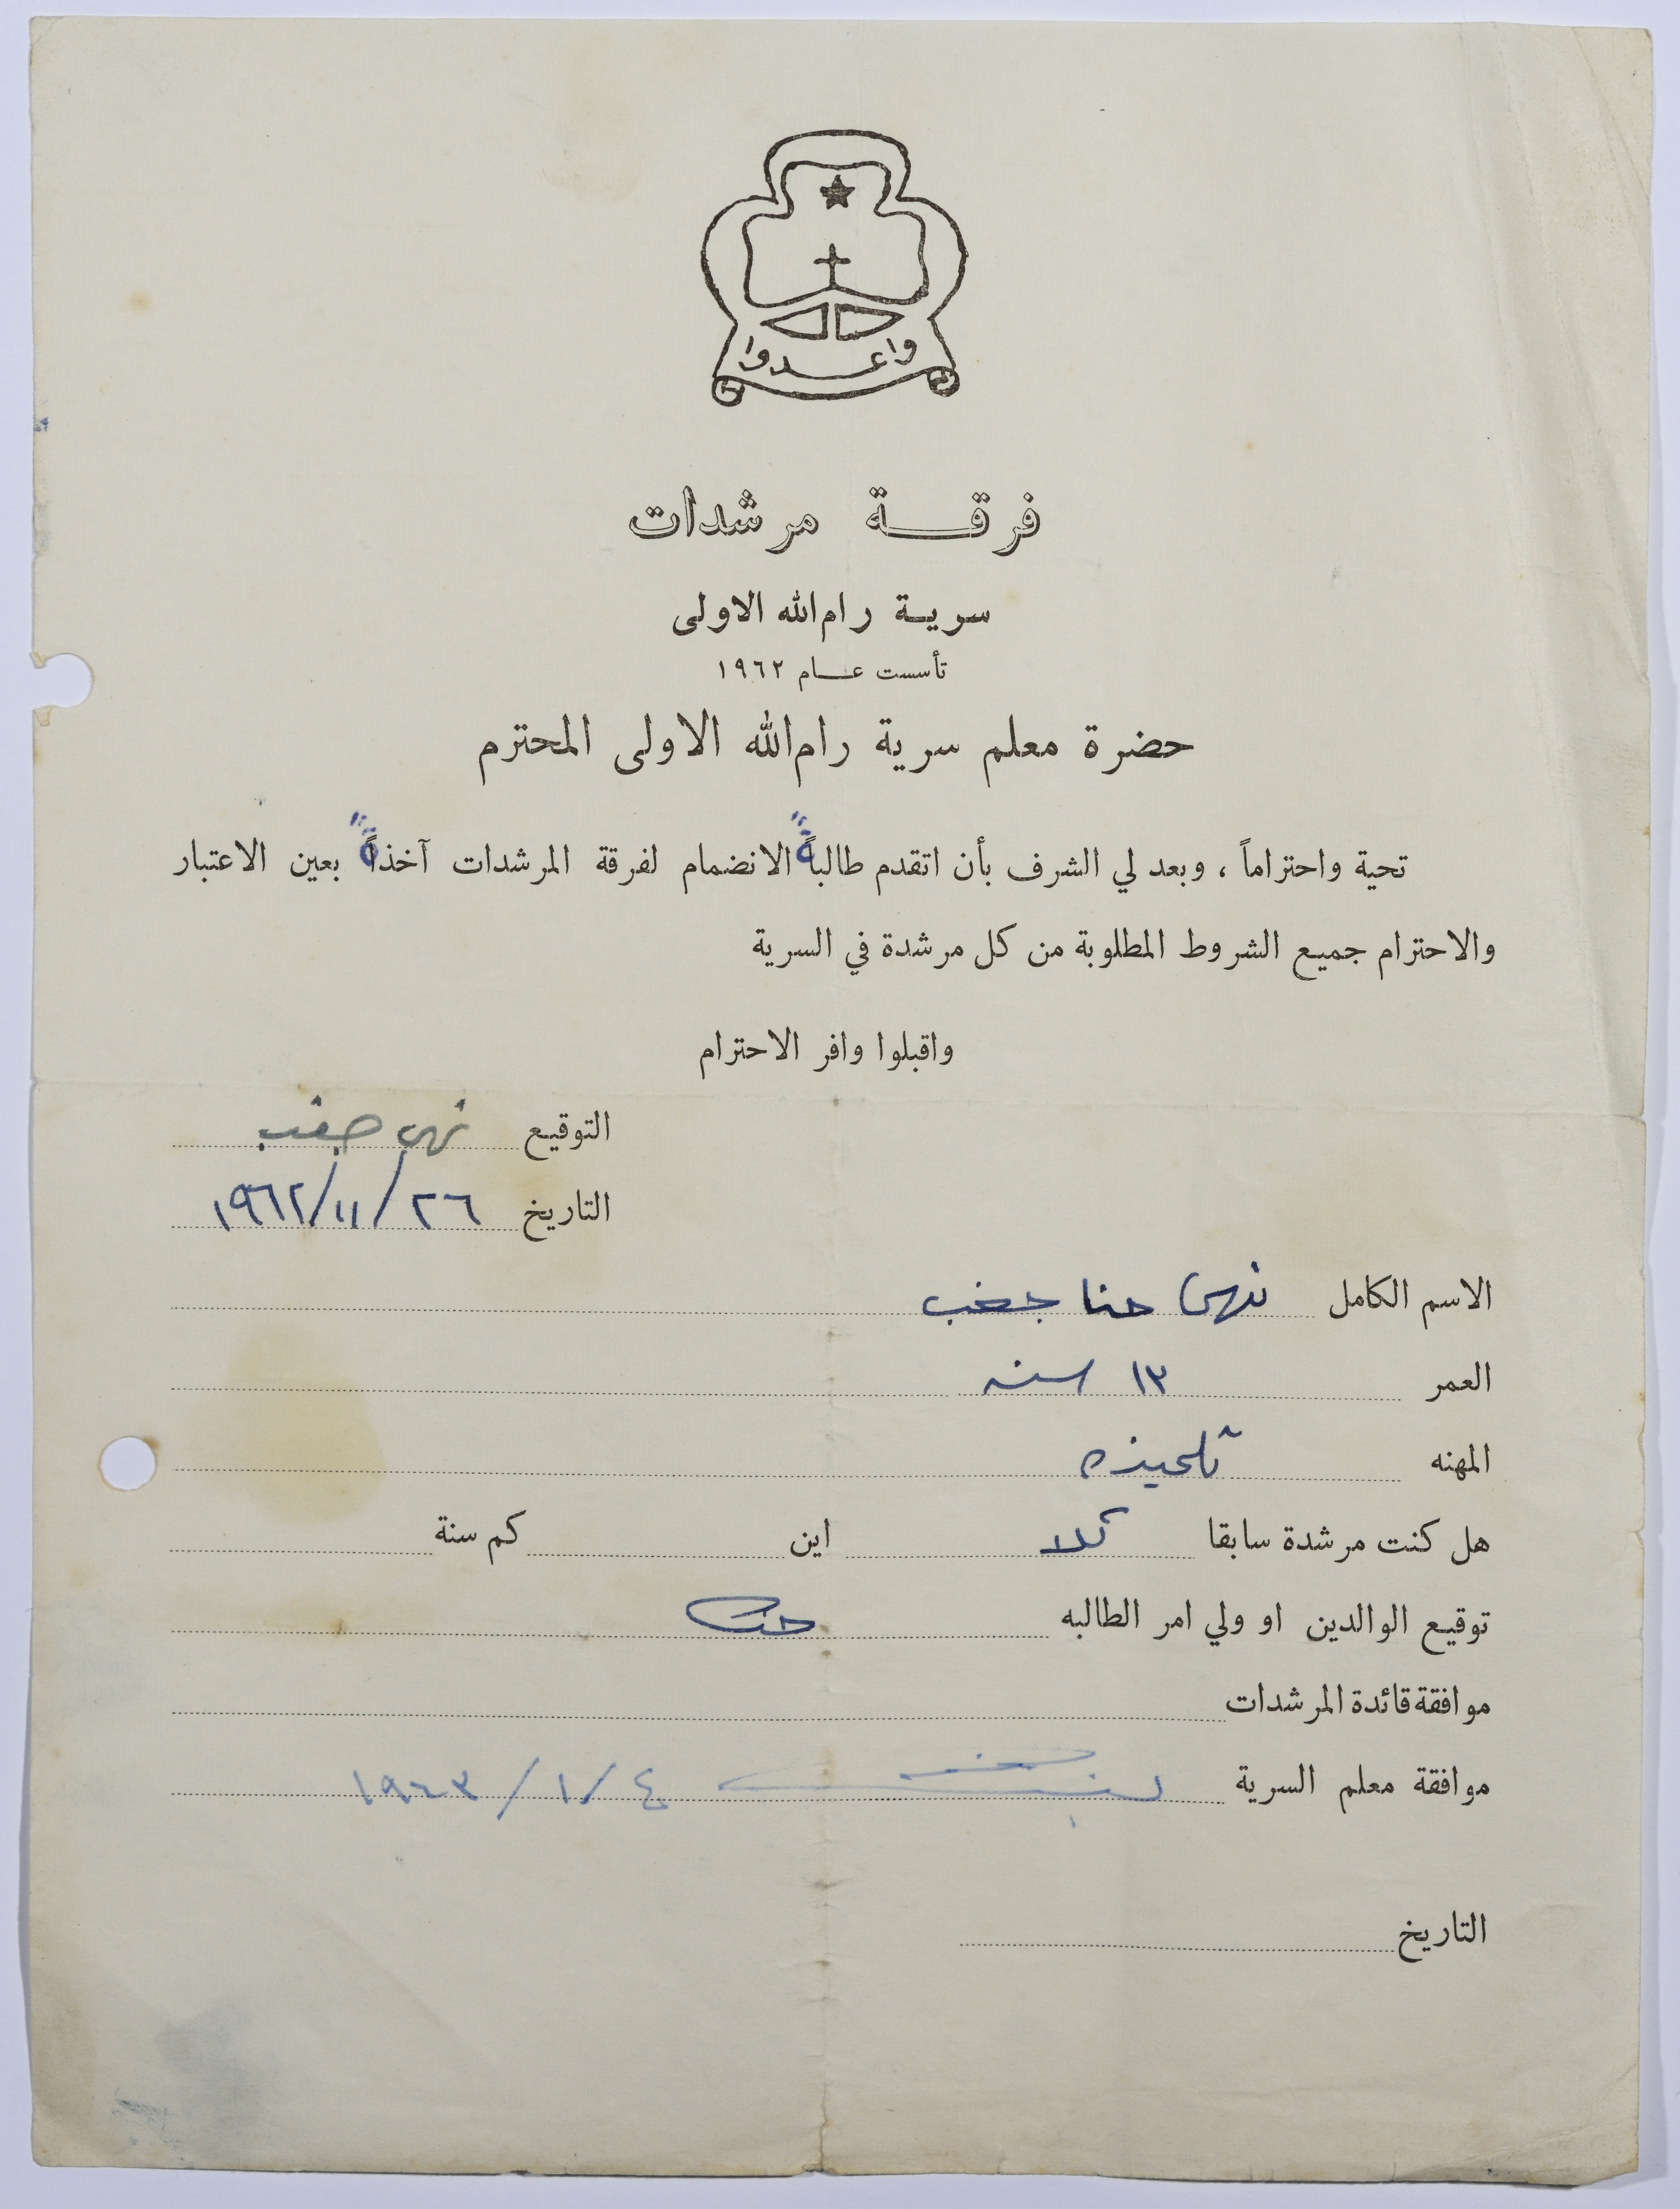 واعدوا
فرقة مرشدات
سرية رام الله الاولى
تأسست عام ١٩٦٢
حضرة معلم سرية رام الله الاولى المحترم
تحية واحتراماً ، وبعد لي الشرف بأن اتقدم طالبةً الانضمام لفرقة المرشدات آخذةً بعين الاعتبار
والاحترام جميع الشروط المطلوبة من كل مرشدة في السرية
واقبلوا وافر الاحترام
التوقيع نهى
التاريخ ٢٦/١١/١٩٦٢
الاسم الكامل نهى حنا جغب
العمر ١٣ سنه
المهنه تلميذه
هل كنت مرشدة سابقا كلا اين كم سنة
توقيع الوالدين او ولي امر الطالبه حنا
موافقة قائدة المرشدات
موافقة معلم السرية ٤/١/١٩٦٣
التاريخ